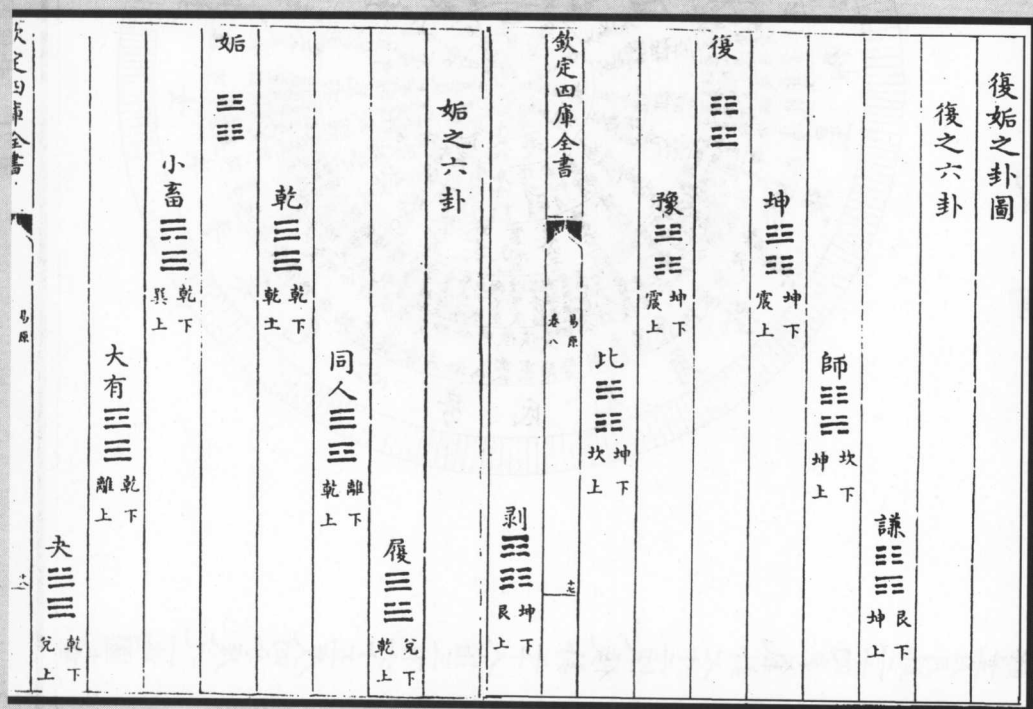 復姤之卦圖
復之六卦
謙 艮下 坤上
師 坎下 坤上
坤 坤下 震上
復
豫 坤下 震上
比 坤下 坎上
欽定四庫全書 易原 卷八 十七
剥 坤下 艮上
姤之六卦
履 兌下 乾上
同人 離下 乾上
乾 乾下 乾上
姤
小畜 乾下 巽上
大有 乾下 離上
夬 乾下 兌上
欽定四庫全書 易原